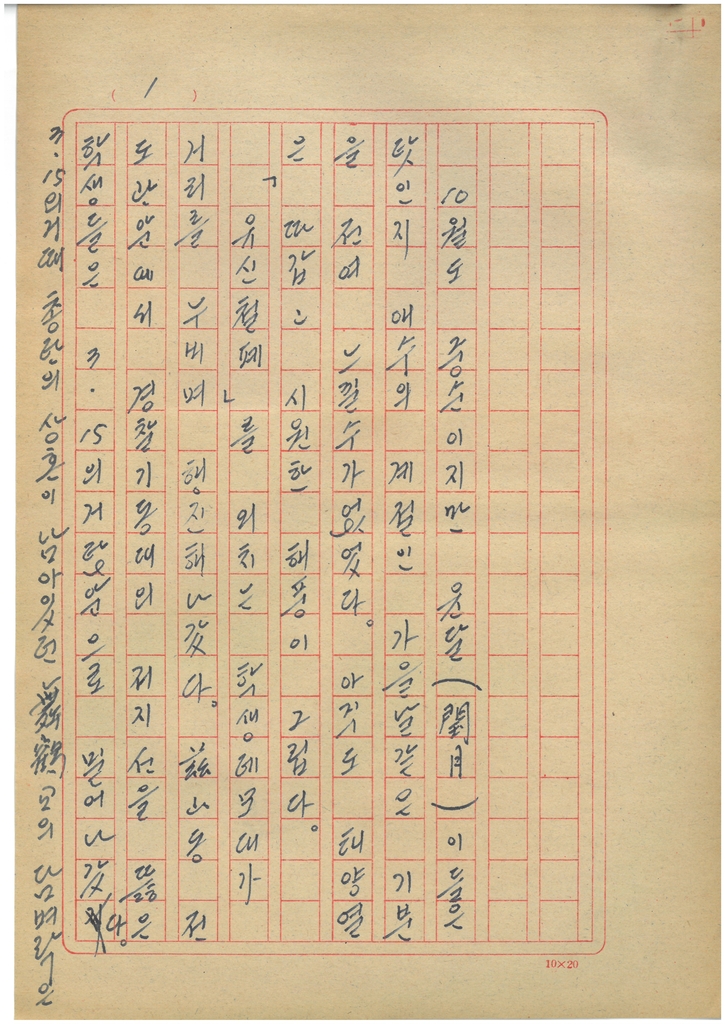 ( 1 )
10월도 중순이지만 윤달(閏月)이 들은
탓인지 애수의 계절인 가을날 같은 기분
을 전여 느낄수가 없었다. 아직도 태양열
은 따갑고 시원한 해풍이 그립다.
「유신철폐」를 외치는 학생데모대가
거리를 누비며 행진해 나갔다. 玆山동 전
도관앞에서 경찰기동대의 저지선을 뚫은
학생들은 3.15의거탑앞으로 밀어나갔다.
3.15의거때 총탄의 상흔이 남아있던 舞鶴국의 담벼락은
10×20